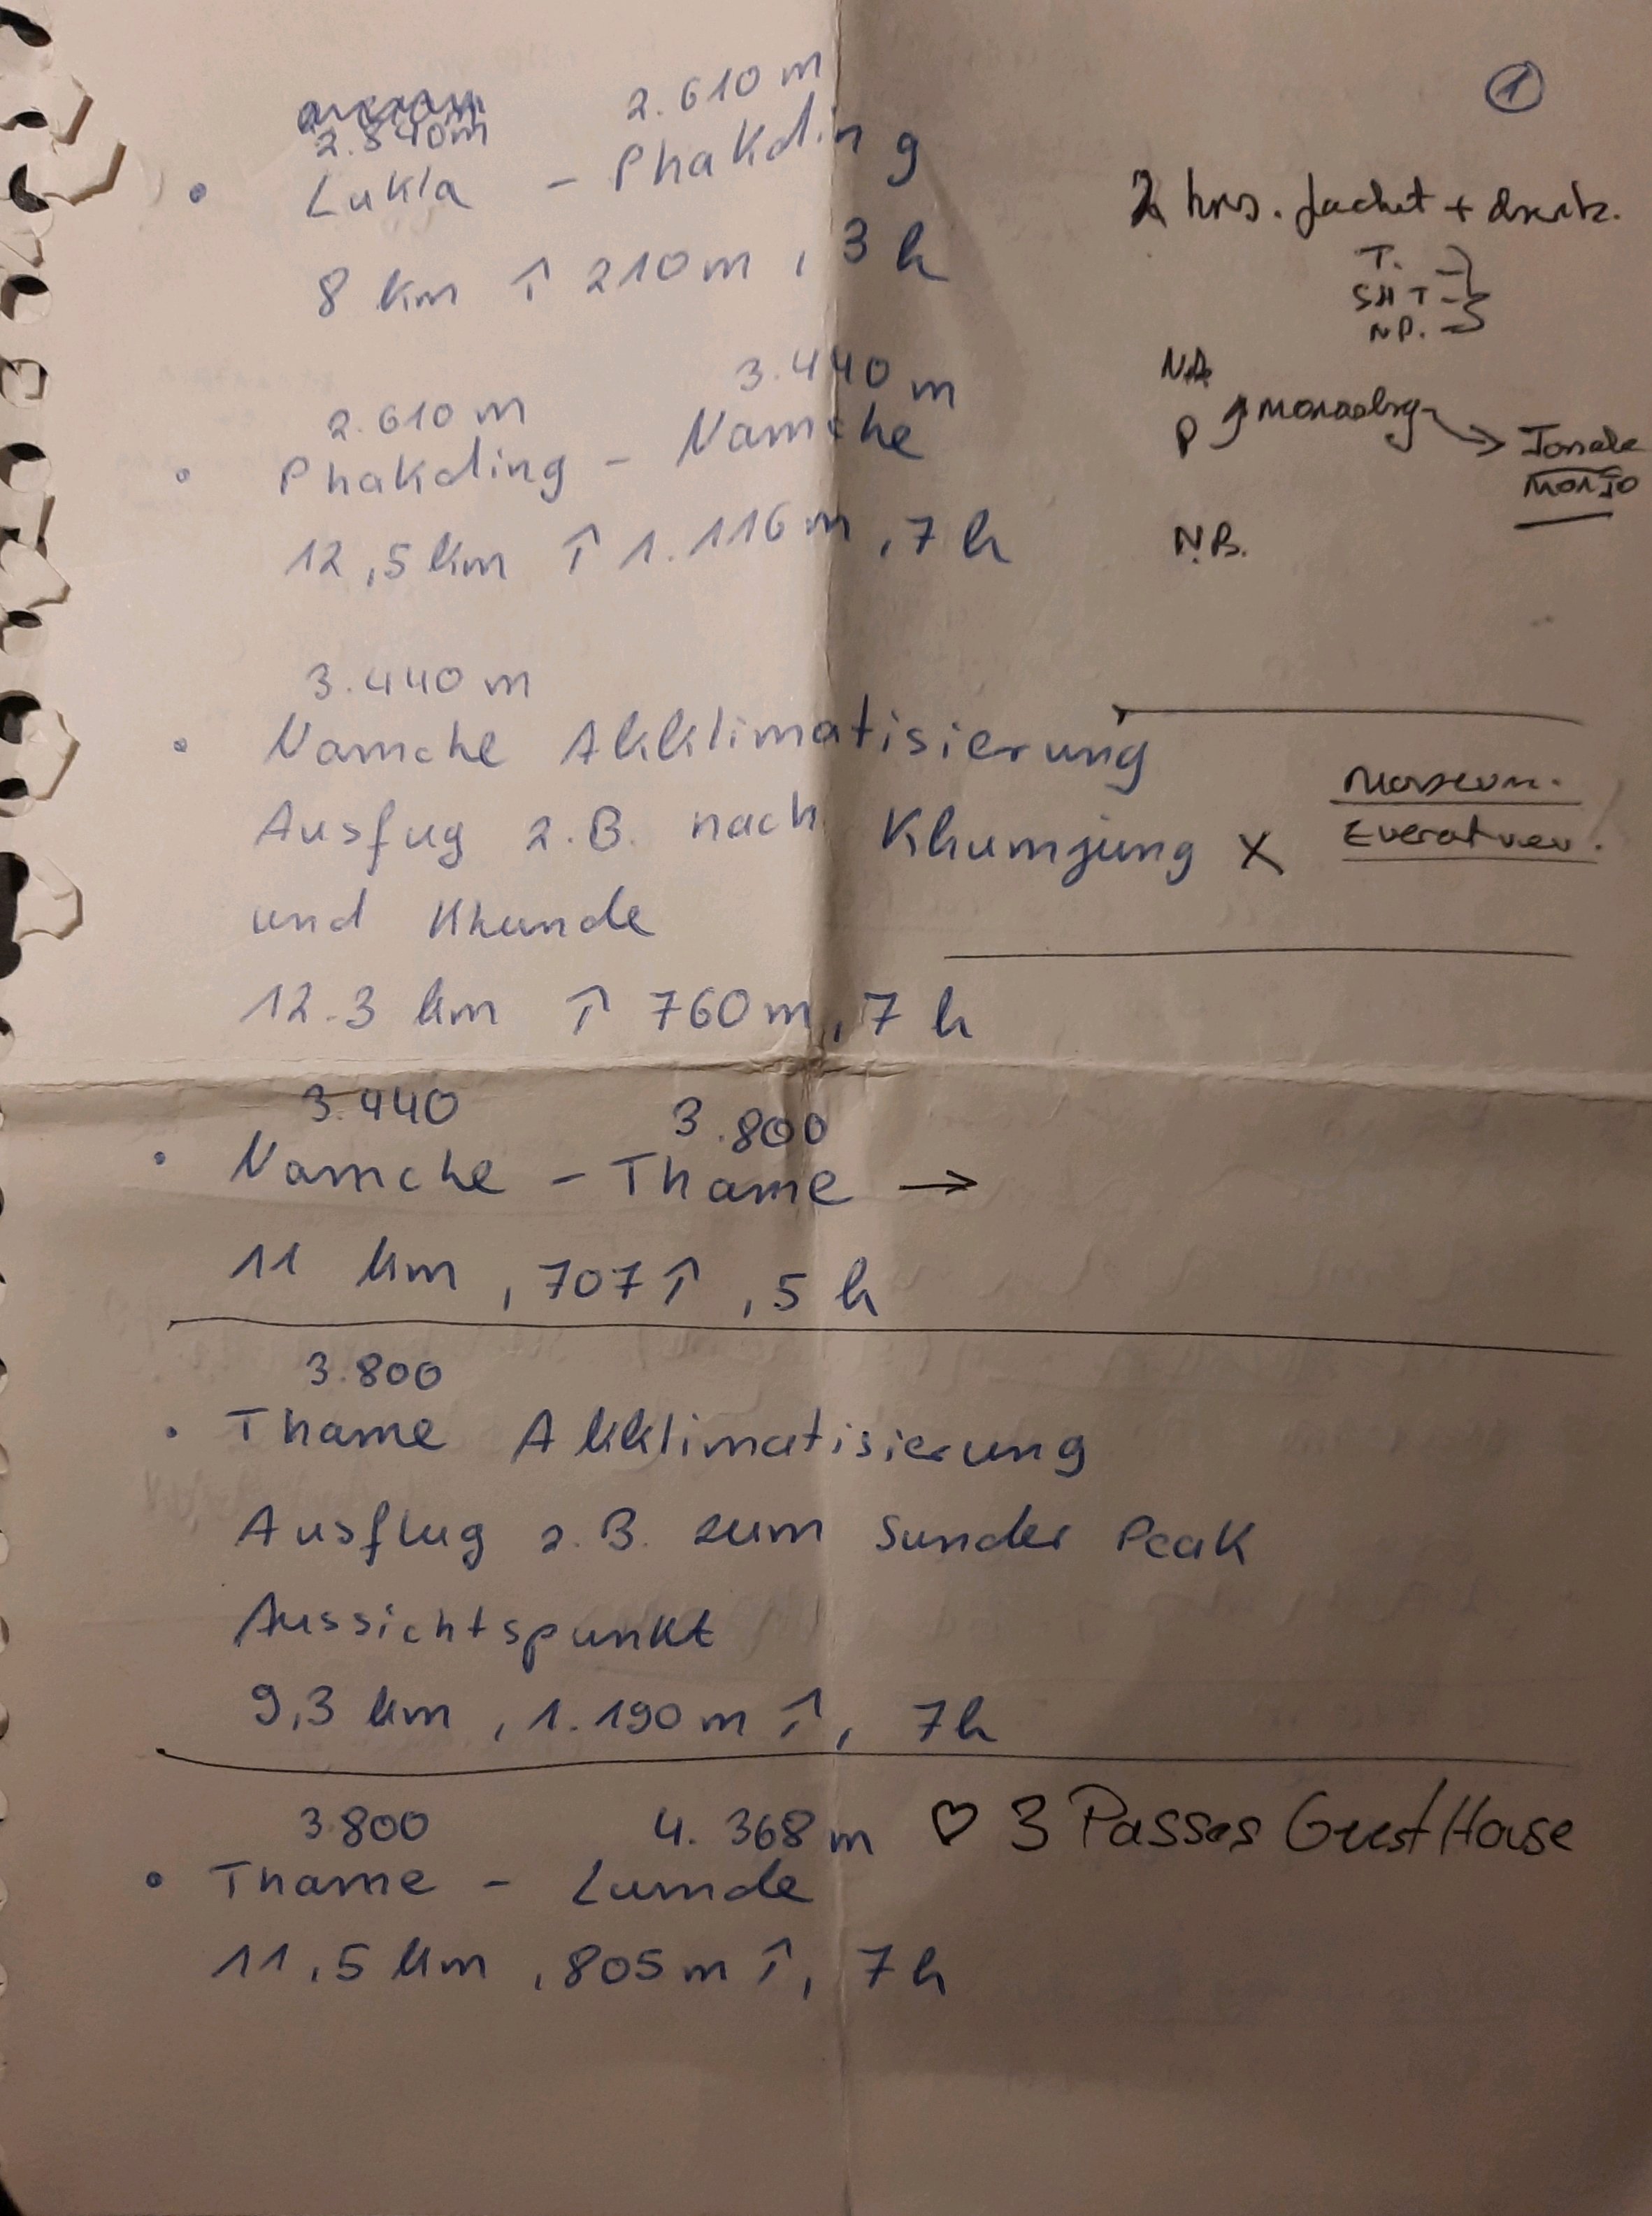 ①
2.840m 2.610 m
• Lukla - Phakding
8 km ↑ 210m, 3 h
2 hrs. Jacket + drink.
T.
SH T
NP.
2.610 m 3.440 m
• Phakding - Namche
12,5 km ↑ 1.116m, 7 h
P
Monjo
N.B.
3.440 m
• Namche Akklimatisierung
Ausfug z.B. nach Khumjung x
und Khunde
museum.
12.3 km ↑ 760m, 7 h
3.440 3.800
• Namche - Thame →
11 km, 707 ↑, 5 h
3.800
• Thame Akklimatisierung
Ausflug z.B. zum Sunder Peak
Aussichtspunkt
9,3 km, 1.190m ↑, 7h
3.800 4.368m ♡ 3 Passes Guest House
• Thame - Lumde
11,5 km, 805m ↑, 7h